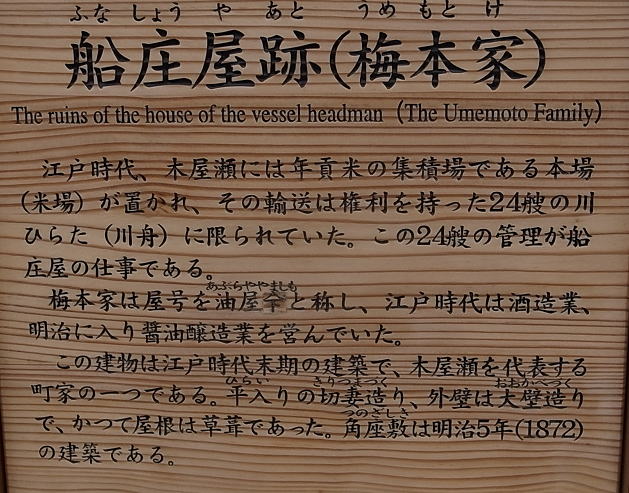 ふなしょうやあと うめもとけ
船庄屋跡(梅本家)
The ruins of the house of the vessel headman (The Umemoto Family)
江戸時代、木屋瀬には年貢米の集積場である本場
(米場)が置かれ、その輸送は権利を持った24艘の川
ひらた(川舟)に限られていた。この24艘の管理が船
庄屋の仕事である。
あぶらややましも
梅本家は屋号を油屋と称し、江戸時代は酒造業、
明治に入り醤油醸造業を営んでいた。
この建物は江戸時代末期の建築で、木屋瀬を代表する
ひらい きりつまつく おおかべつく
町家の一つである。平入りの切妻造り、外壁は大壁造り
つのざしき
で、かつて屋根は草葺であった。角座敷は明治5年(1872)
の建築である。